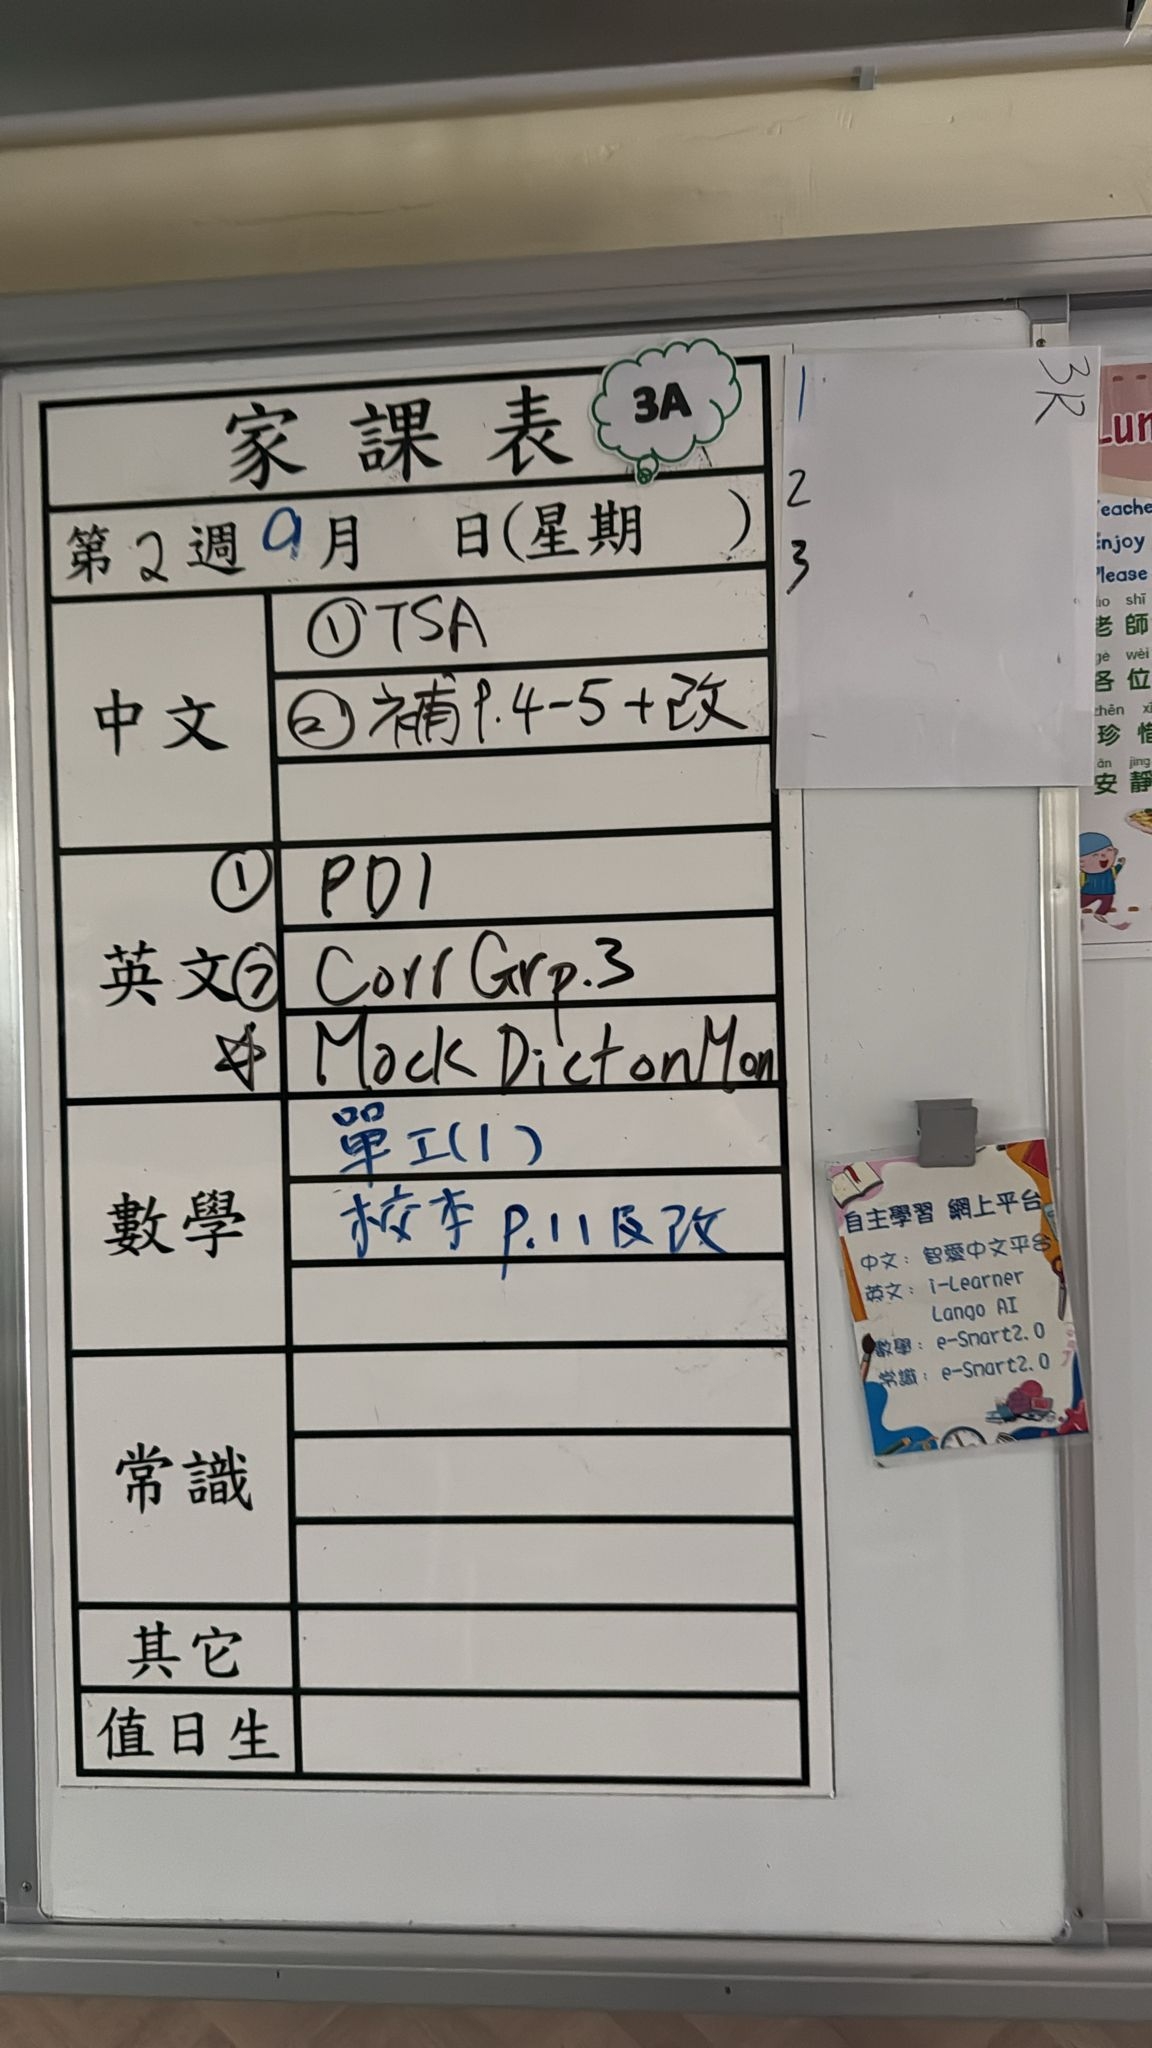 家課表
3A
第2週9月 日(星期 )
中文
①TSA
②補P.4-5+改
英文
① PD1
② Corr Gr p.3
☆ Mock Dict on Mon
數學
單工(1)
校本 p.11及改
常識
其它
值日生
3R
1
2
3
Lun
Teache
Enjoy
Please
ǎo shī
老師
gè wèi
各位
zhēn xī
珍惜
ān jìng
安靜
自主學習 網上平台
中文：智愛中文平台
英文：i-Learner
Lango AI
數學：e-Smart2.0
常識：e-Smart2.0